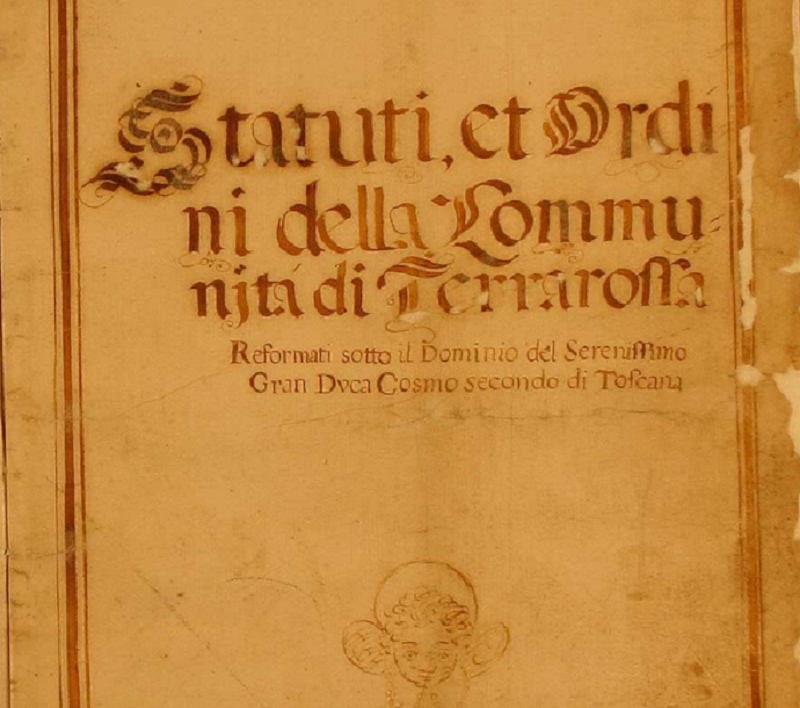 Statuti, et Ordi
ni della Commu-
njta di Terrarossa
Reformati sotto il Dominio del Serenissimo
Gran Dvca Cosmo secondo di Toscana